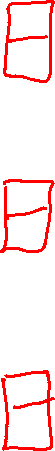 日
日
日